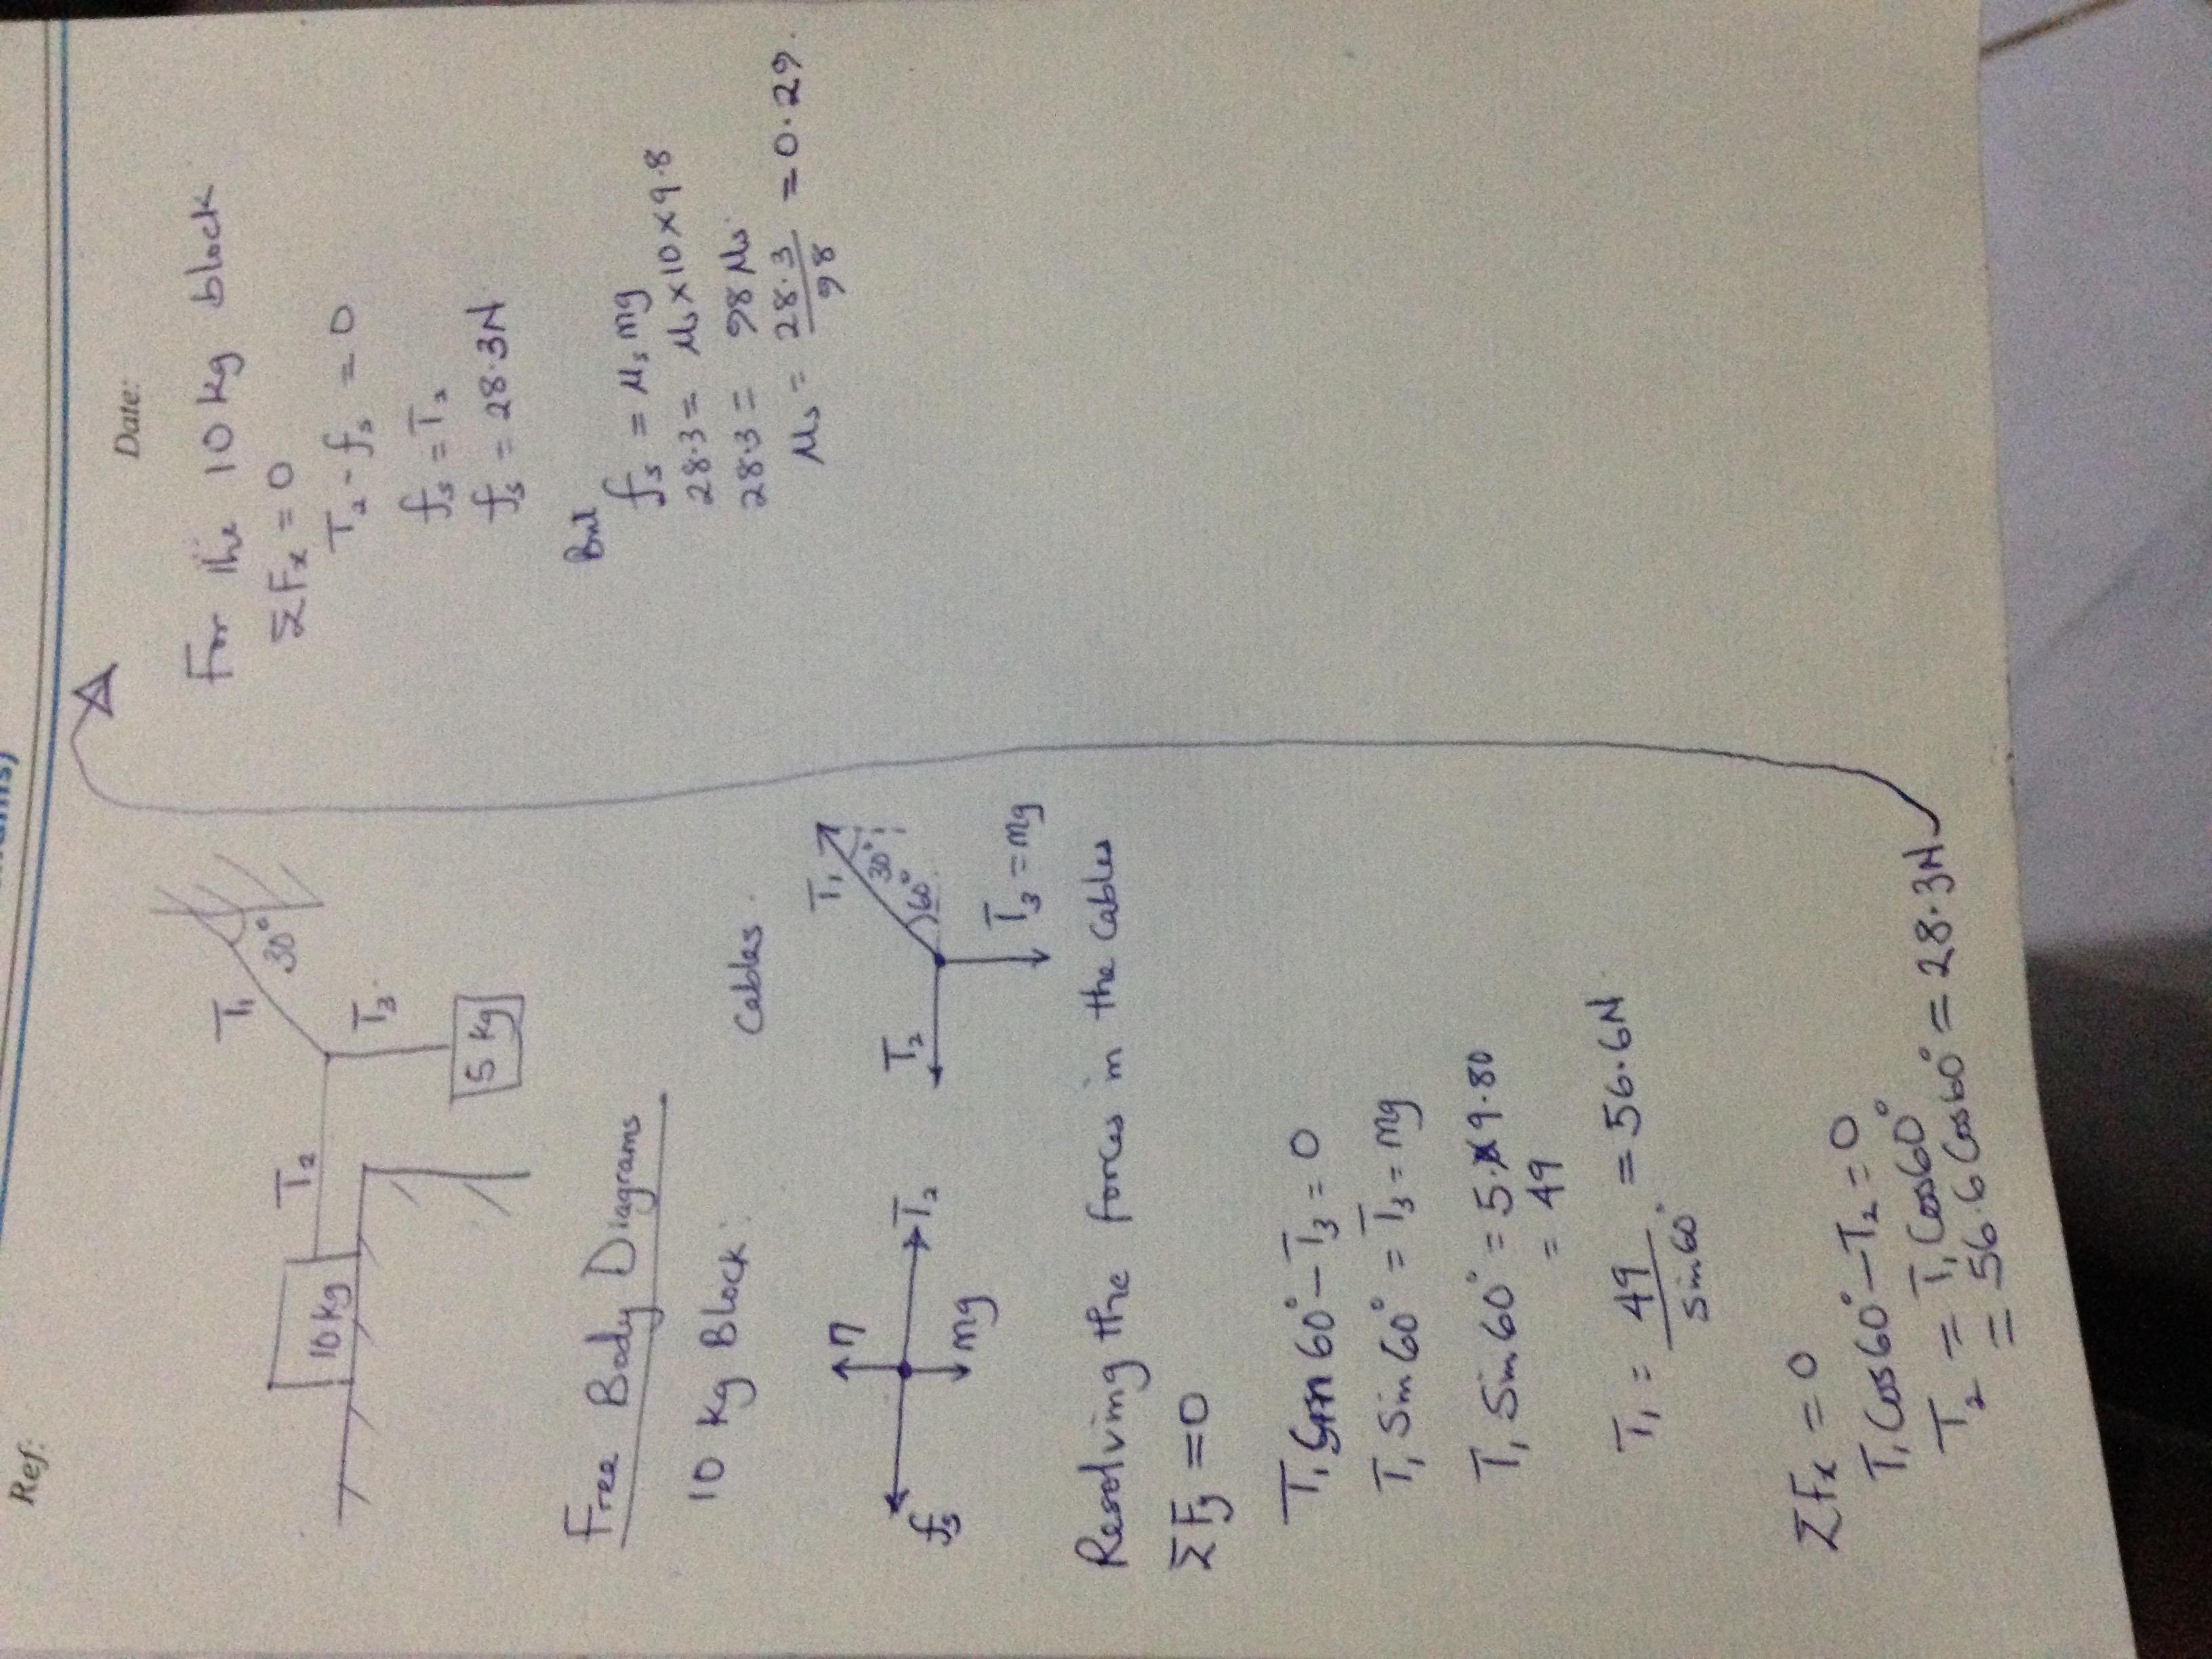 Ref:
Date:
T₁
30°
T₂
T₃
10 kg
5 kg
Free Body Diagrams
10 kg Block:
Cables.
η
fₛ
T₂
mg
T₁
30°
60°
T₂
T₃ = mg
Resolving the forces in the cables
ΣFy = 0
T₁ Sin 60° - T₃ = 0
T₁ Sin 60° = T₃ = mg
T₁ Sin 60° = 5 × 9.80
= 49
T₁ = 49 / Sin 60° = 56.6N.
ΣFx = 0
T₁ Cos 60° - T₂ = 0
T₂ = T₁ Cos 60°
= 56.6 Cos 60° = 28.3N
For the 10 kg block
ΣFx = 0
T₂ - fₛ = 0
fₛ = T₂
fₛ = 28.3N
But
fₛ = μₛ mg
28.3 = μₛ × 10 × 9.8
28.3 = 98 μₛ.
μₛ = 28.3 / 98 = 0.29.